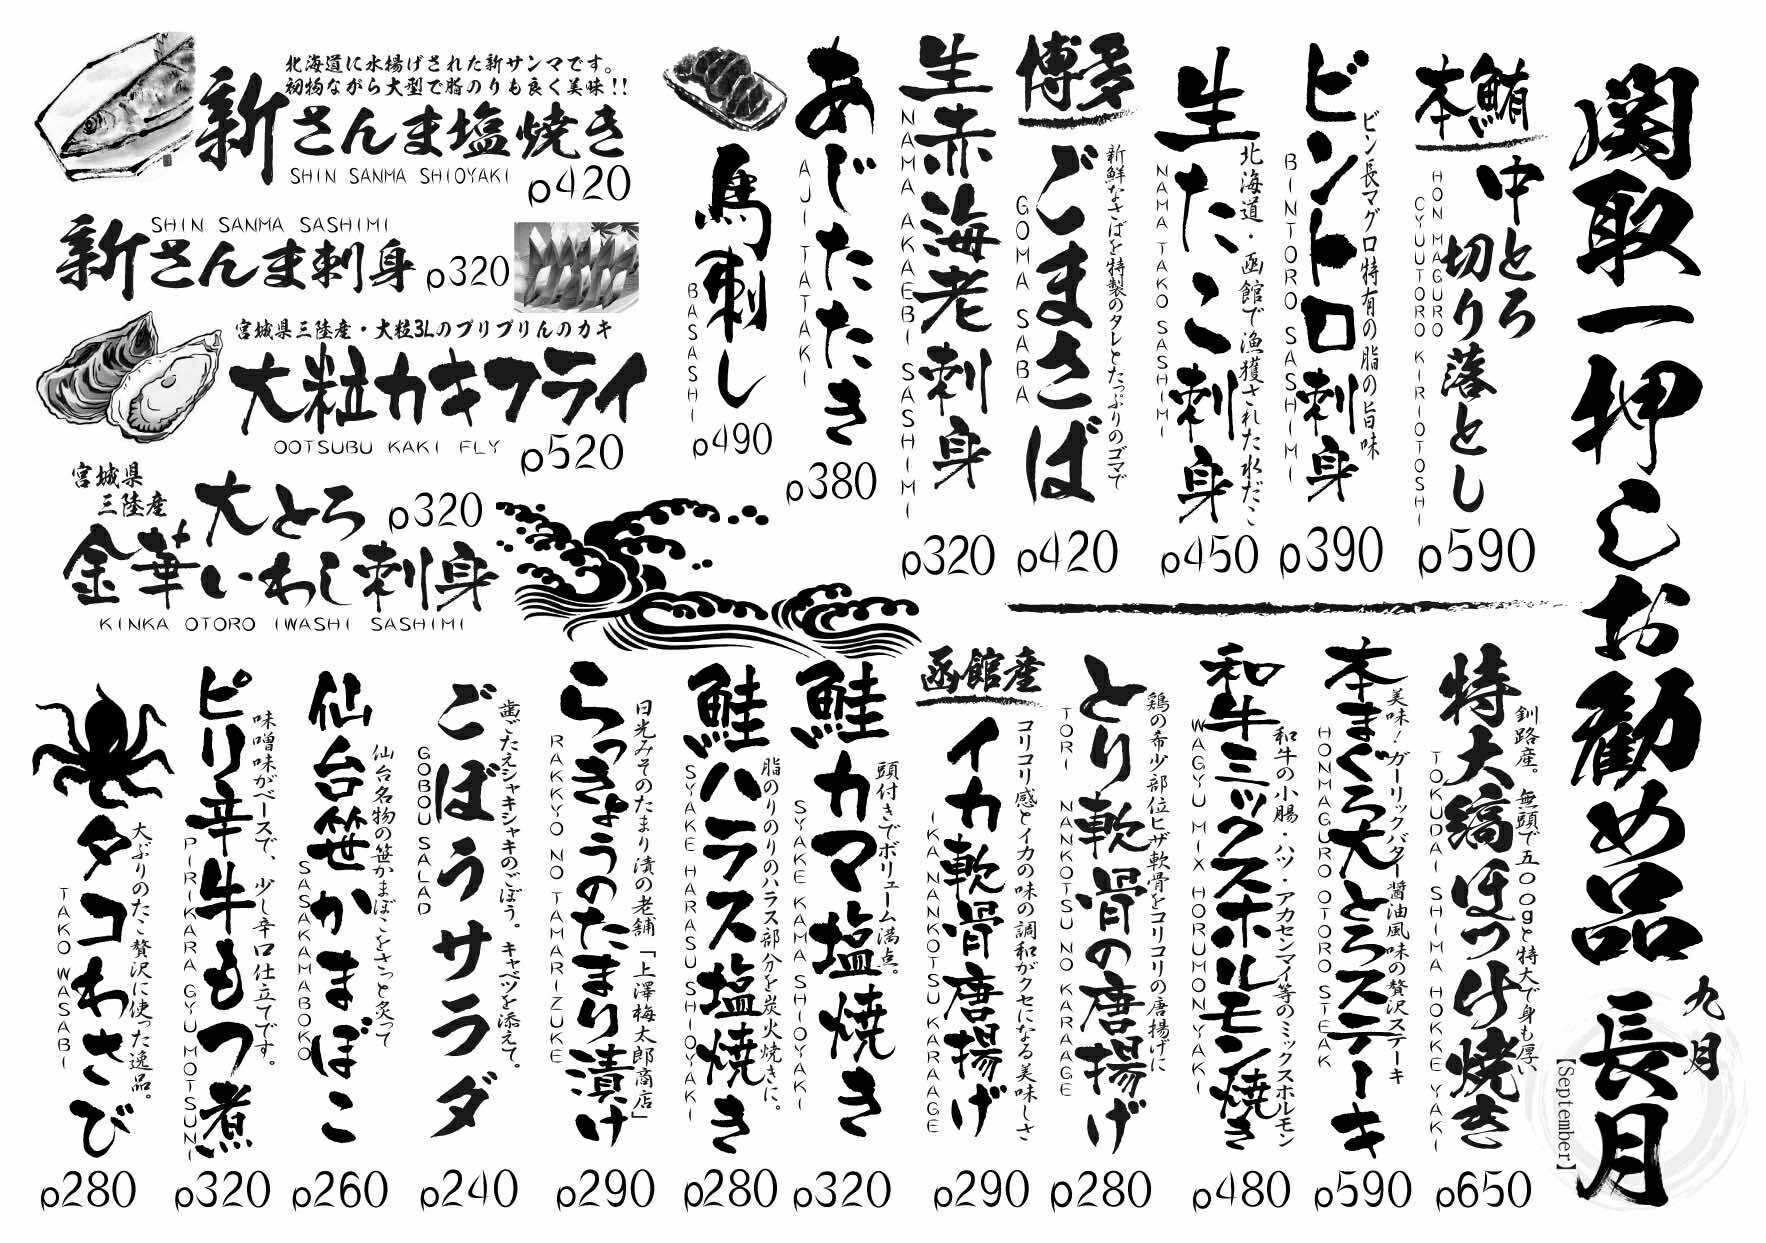 関取一押しお勧め品
九月
長月
【September】
本鮪
中とろ
切り落とし
HON MAGURO
CYUUTORO KIRIOTOSHI
p590
ビントロ刺身
ビン長マグロ特有の脂の旨味
BINTORO SASHIMI
p390
生たこ刺身
北海道・函館で漁獲された水だこ
NAMA TAKO SASHIMI
p450
博多
ごまさば
新鮮なさばを特製のタレとたっぷりのゴマで
GOMA SABA
p420
生赤海老刺身
NAMA AKAEBI SASHIMI
p320
あじたたき
AJI TATAKI
p380
馬刺し
BASASHI
p490
北海道に水揚げされた新サンマです。
初物ながら大型で脂のりも良く美味!!
新さんま塩焼き
SHIN SANMA SHIOYAKI
p420
SHIN SANMA SASHIMI
新さんま刺身
p320
宮城県三陸産・大粒3Lのプリプリんのカキ
大粒カキフライ
OOTSUBU KAKI FLY
p520
宮城県
三陸産
大とろ
p320
金華いわし刺身
KINKA OTORO IWASHI SASHIMI
特大縞ほっけ焼き
釧路産。無頭で五〇〇gと特大で身も厚い
TOKUDAI SHIMA HOKKE YAKI
p650
本まぐろ大とろステーキ
美味!ガーリックバター醤油風味の贅沢ステーキ
HONMAGURO OTORO STEAK
p590
和牛ミックスホルモン焼き
和牛の小腸・ハツ・アカセンマイ等のミックスホルモン
WAGYU MIX HORUMONYAKI
p480
とり軟骨の唐揚げ
鶏の希少部位ヒザ軟骨をコリコリの唐揚げに
TORI NANKOTSU NO KARAAGE
p280
函館産
イカ軟骨唐揚げ
コリコリ感とイカの味の調和がクセになる美味しさ
IKA NANKOTSU KARAAGE
p290
鮭カマ塩焼き
頭付きでボリューム満点。
SYAKE KAMA SHIOYAKI
p320
鮭ハラス塩焼き
脂のりのりのハラス部分を炭火焼きに。
SYAKE HARASU SHIOYAKI
p280
らっきょうのたまり漬け
日光みそのたまり漬の老舗「上澤梅太郎商店」
RAKKYO NO TAMARIZUKE
p290
ごぼうサラダ
歯ごたえシャキシャキのごぼう。キャベツを添えて。
GOBOU SALAD
p240
仙台笹かまぼこ
仙台名物の笹かまぼこをさっと炙って
SASAKAMABOKO
p260
ピリ辛牛もつ煮
味噌味がベースで、少し辛口仕立てです。
PIRIKARA GYU MOTSUNI
p320
タコわさび
大ぶりのたこ贅沢に使った逸品。
TAKO WASABI
p280